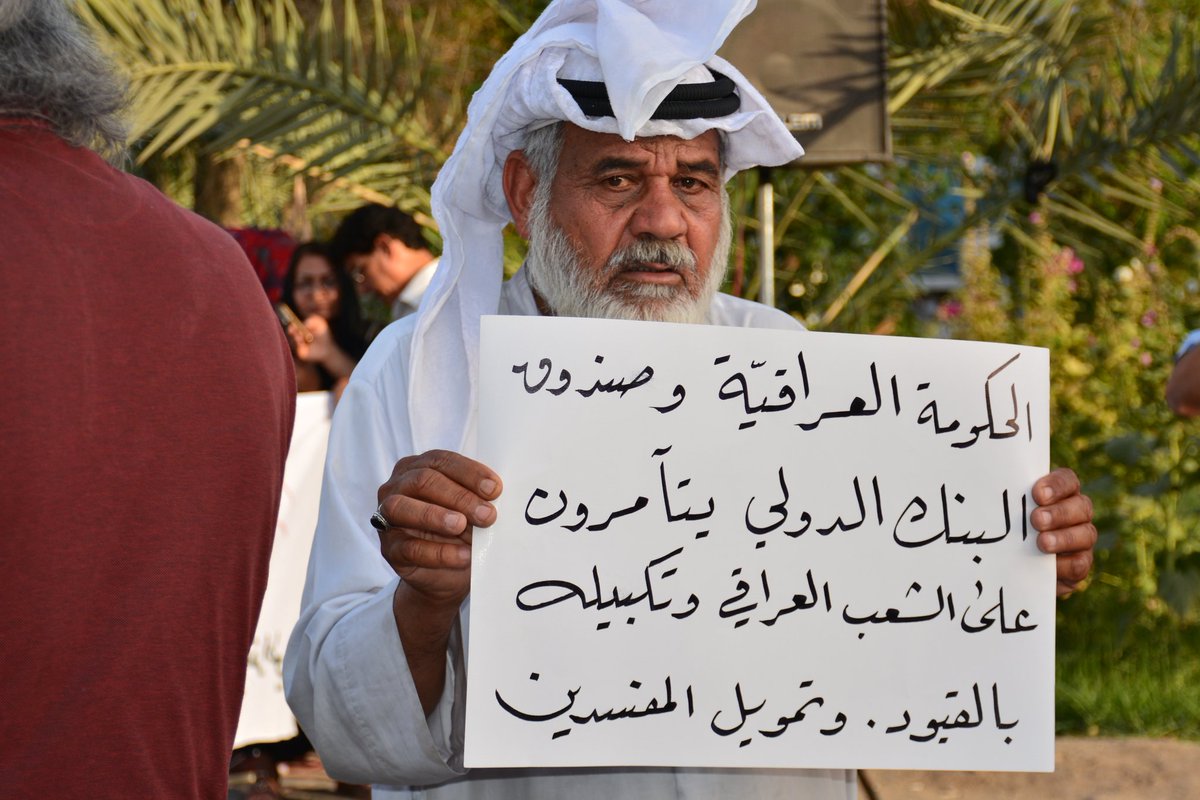 الحكومة العراقيّة وصندوق
البنك الدولي يتآمرون
على الشعب العراقي وتكبيله
بالقيود. وتمويل المفسدين